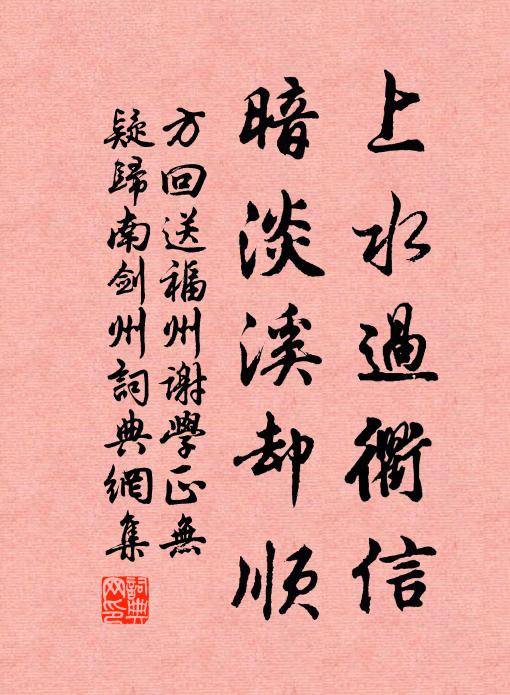 上水過衢信
暗淡溪却順
方回送福州谢學正無
疑歸南剑州詞典網集
詞典網印